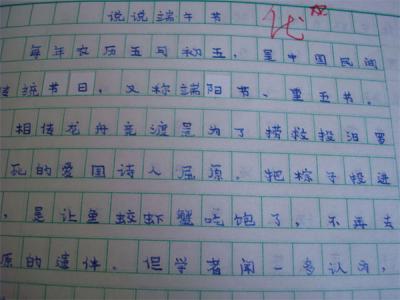 说说端午节
每年农历五月初五，是中国民间
传统节日，又称端阳节、重五节。
相传龙舟竞渡是为了捞救投汨罗
死的爱国诗人屈原。把粽子投进
，是让鱼蛟虾蟹吃饱了，不再去
原的遗体。但学者闻一多认为，